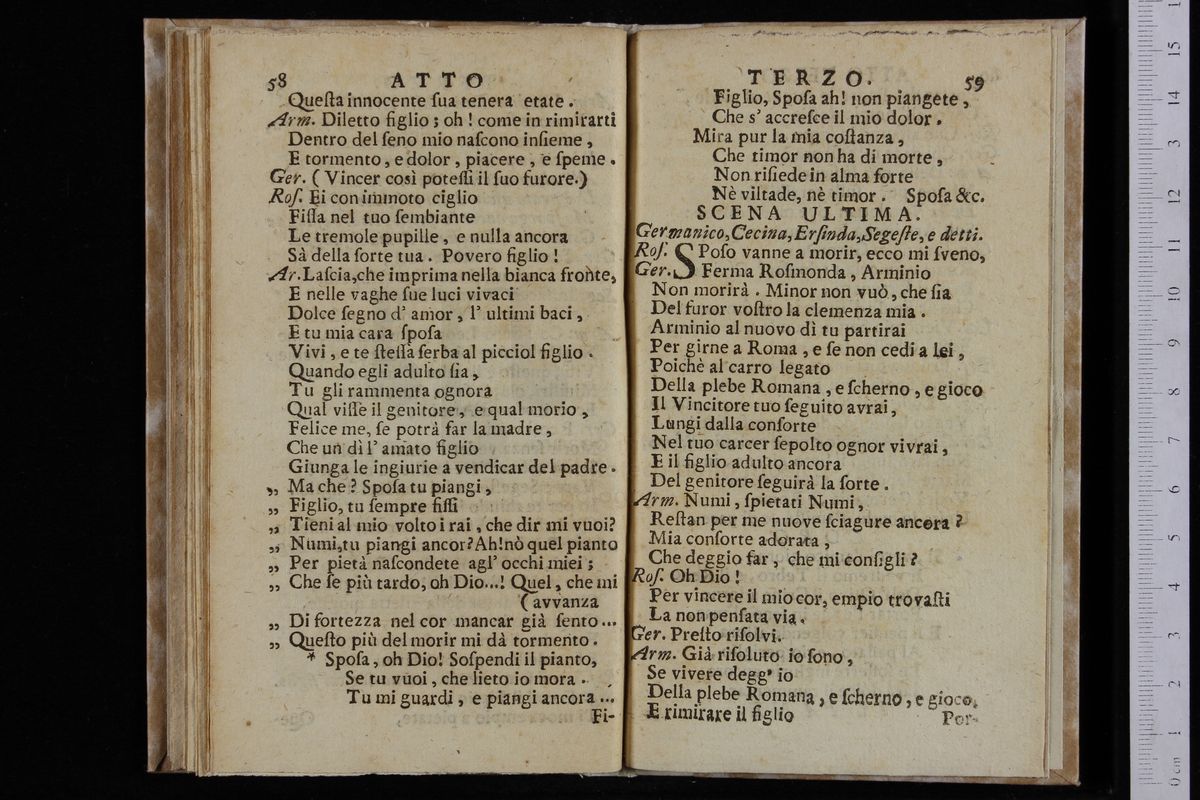 58 ATTO
Queſta innocente ſua tenera etate.
Arm. Diletto figlio; oh! come in rimirarti
Dentro del ſeno mio naſcono inſieme,
E tormento, e dolor, piacere, e ſpeme.
Ger. (Vincer così poteſſi il ſuo furore.)
Roſ. Ei con immoto ciglio
Fiſſa nel tuo ſembiante
Le tremole pupille, e nulla ancora
Sà della ſorte tua. Povero figlio!
Ar. Laſcia, che imprima nella bianca fronte,
E nelle vaghe ſue luci vivaci
Dolce ſegno d' amor, l' ultimi baci,
E tu mia cara ſpoſa
Vivi, e te ſteſſa ſerba al picciol figlio.
Quando egli adulto ſia,
Tu gli rammenta ognora
Qual viſſe il genitore, e qual morio,
Felice me, ſe potrà far la madre,
Che un dì l' amato figlio
Giunga le ingiurie a vendicar del padre.
„ Ma che? Spoſa tu piangi,
„ Figlio, tu ſempre fiſſi
„ Tieni al mio volto i rai, che dir mi vuoi?
„ Numi, tu piangi ancor? Ah! nò quel pianto
„ Per pietà naſcondete agl' occhi miei;
„ Che ſe più tardo, oh Dio...! Quel, che mi
(avvanza
„ Di fortezza nel cor mancar già ſento...
„ Queſto più del morir mi dà tormento.
* Spoſa, oh Dio! Soſpendi il pianto,
Se tu vuoi, che lieto io mora.
Tu mi guardi, e piangi ancora...
Fi-
TERZO. 59
Figlio, Spoſa ah! non piangete,
Che s' accreſce il mio dolor.
Mira pur la mia coſtanza,
Che timor non ha di morte,
Non riſiede in alma forte
Nè viltade, nè timor. Spoſa &c.
SCENA ULTIMA.
Germanico, Cecina, Erſinda, Segeſte, e detti.
Roſ. SPoſo vanne a morir, ecco mi ſveno,
Ger. Ferma Roſmonda, Arminio
Non morirà. Minor non vuò, che ſia
Del furor voſtro la clemenza mia.
Arminio al nuovo dì tu partirai
Per girne a Roma, e ſe non cedi a lei,
Poichè al carro legato
Della plebe Romana, e ſcherno, e gioco
Il Vincitore tuo ſeguito avrai,
Lungi dalla conſorte
Nel tuo carcer ſepolto ognor vivrai,
E il figlio adulto ancora
Del genitore ſeguirà la ſorte.
Arm. Numi, ſpietati Numi,
Reſtan per me nuove ſciagure ancora?
Mia conſorte adorata,
Che deggio far, che mi conſigli?
Roſ. Oh Dio!
Per vincere il mio cor, empio trovaſti
La non penſata via.
Ger. Preſto riſolvi.
Arm. Già riſoluto io ſono,
Se vivere degg' io
Della plebe Romana, e ſcherno, e gioco,
E rimirare il figlio
Por-